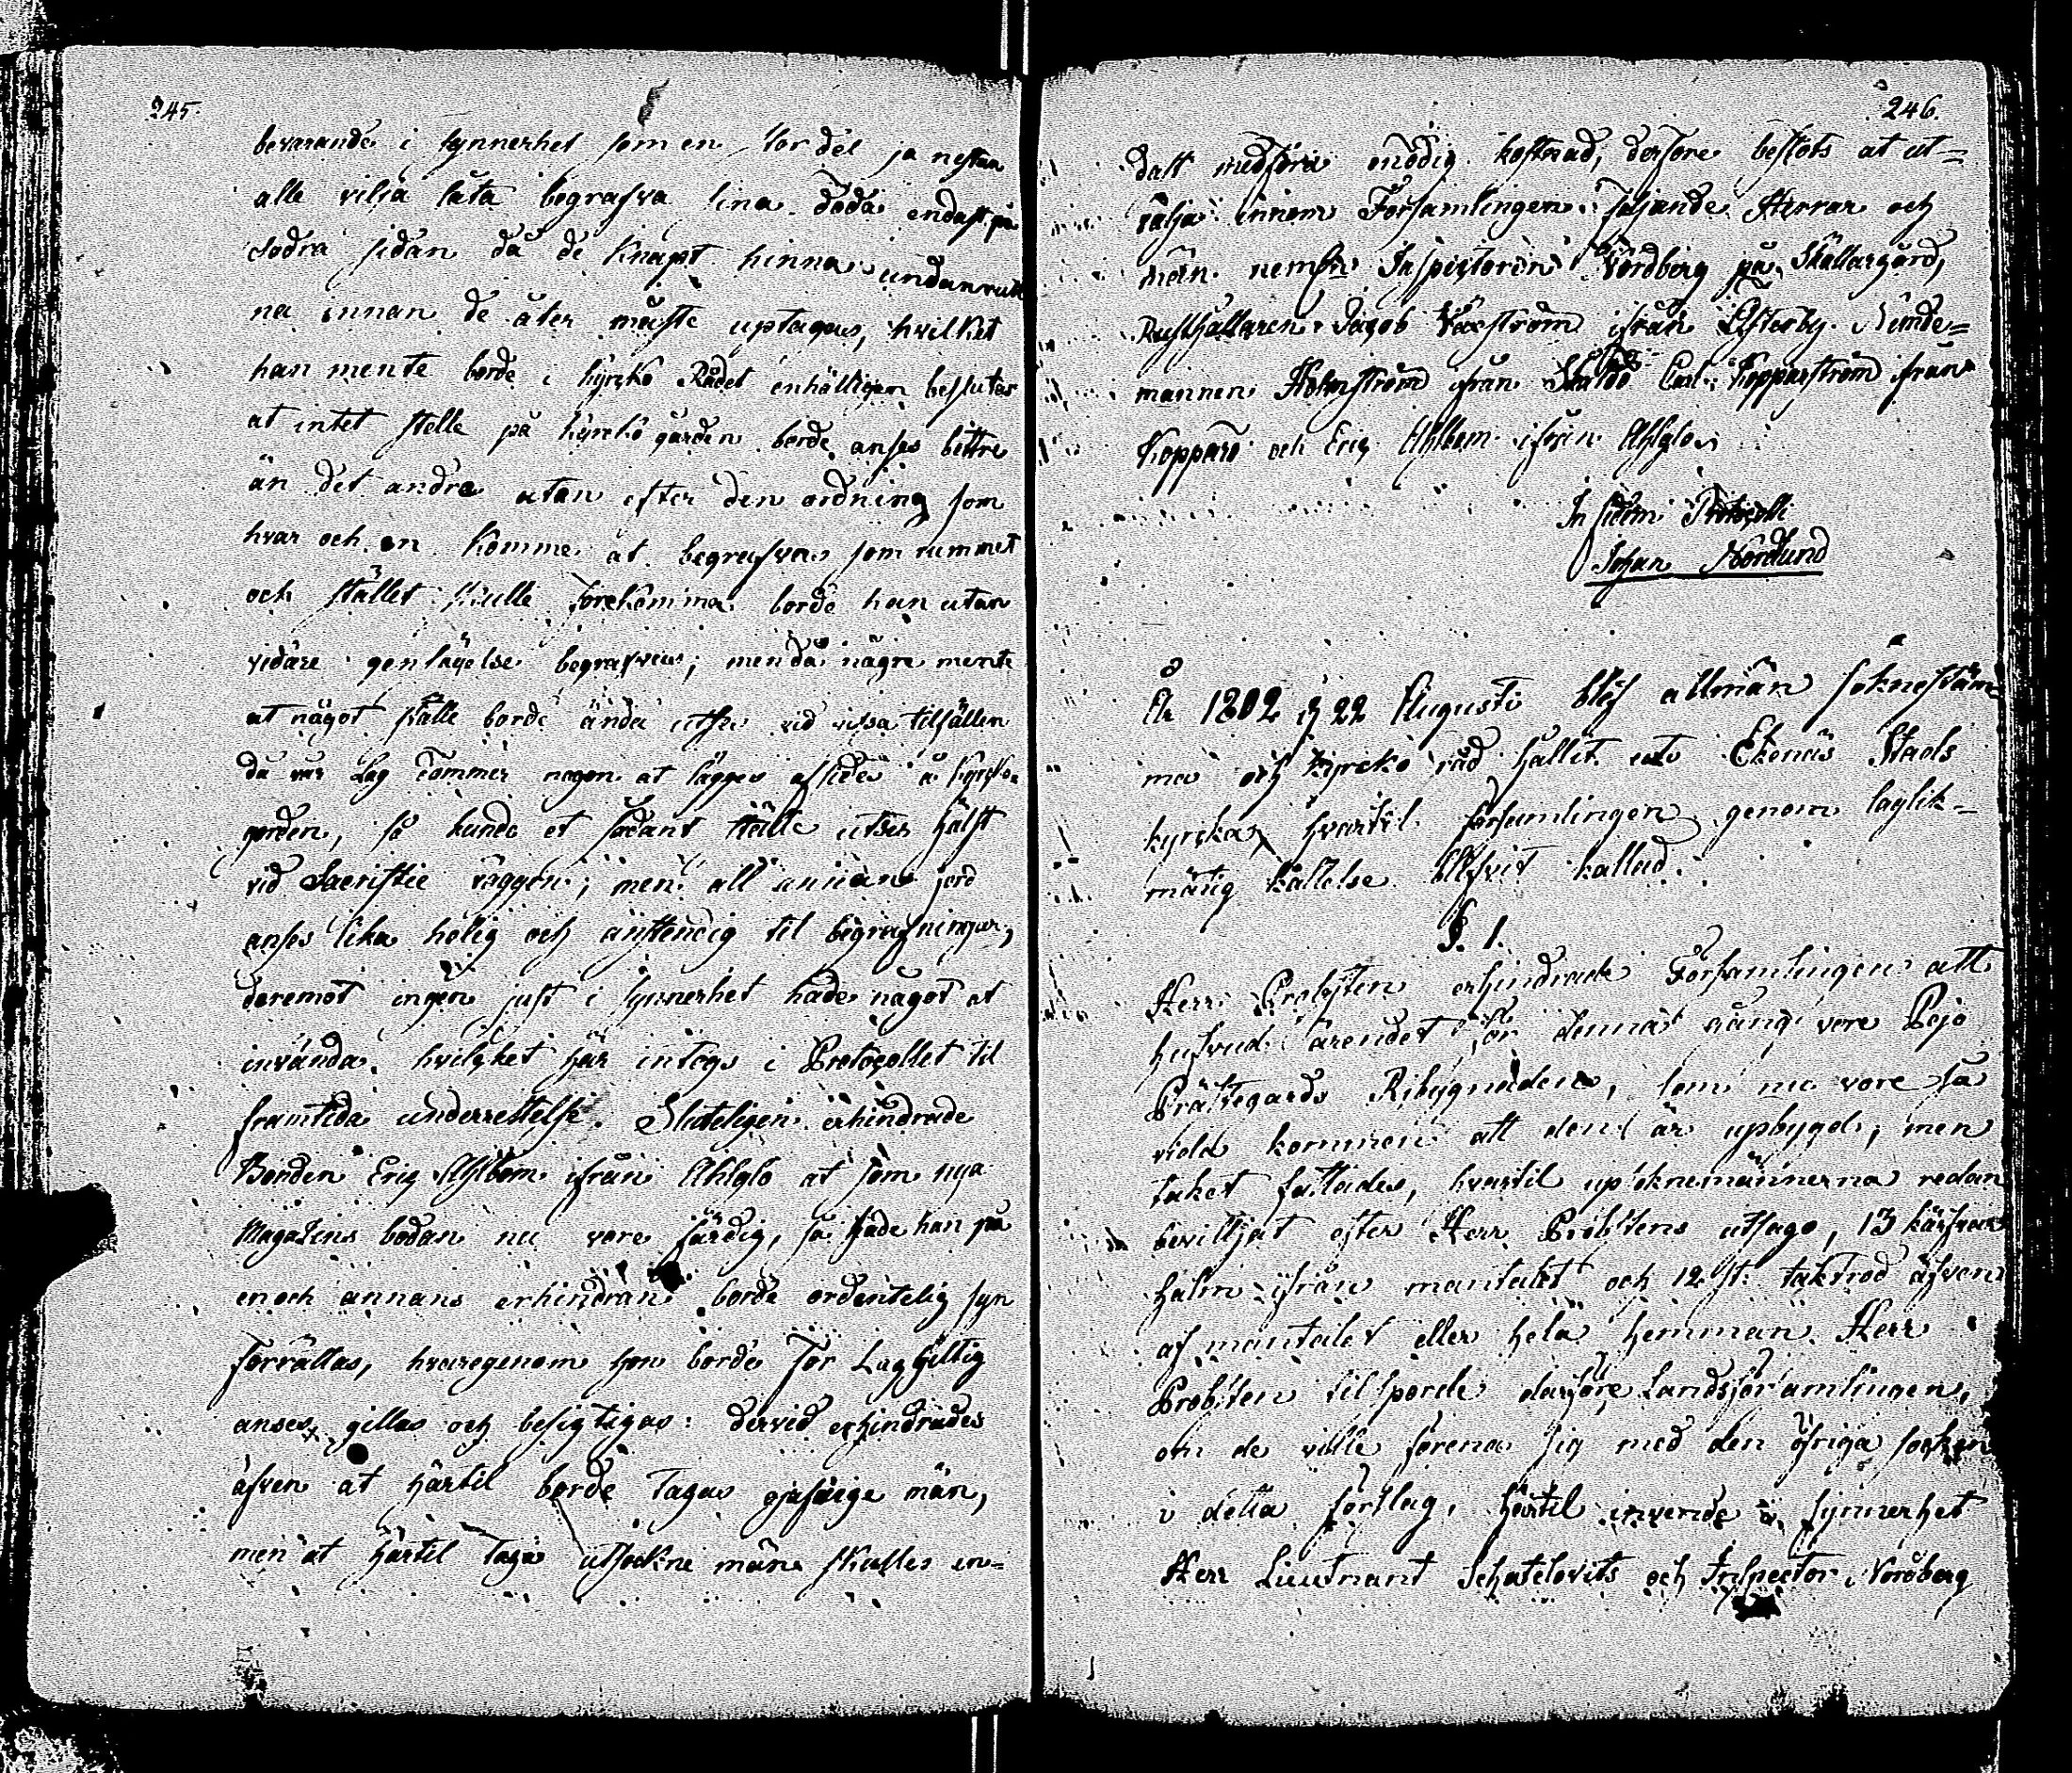 245.
bevarande i synnerhet som en stor del ja nestan
alle vilja låta begrafva sina döda endast på
södra sidan då de knapt hinna undanrut
na innan de åter måste uptagas, hvilket
han mente borde i kyrcko Rådet enhälligen beslutas
at intet stelle på kyrckogården borde anses bettre
än det andra utan efter den ordning som
hvar och en komme at begrafvas som rummet
och stället skulle förekomma borde han utan
vidare gensägelse begrafvas; men då någre mente
at något ställe borde ändå utses vid vissa tilfällen
då vår Lag dömmer någon at läggas afsides å kyrcko
gorden, så kunde et sådant ställe utses hälst
vid Sacristie väggen; men all annan jord
anses lika helig och anstendig til begrafningar,
deremot ingen just i synnerhet hade något at
invända, hvilcket här intogs i Protocollet til
framtida underrettelse. Sluteligen erhindrade
Bonden Eric Ahlbom ifrån Ahlglo at som nya
Magazins bodan nu vore färdig, så hade han på
en och annans erhindran borde ordentelig syn
förrättas, hvaregenom hon borde för Laggiltig
anses, gillas och besigtigas: dervid erhindrades
äfven at härtil borde tagas ojäfvige män,
men at härtil taga utsockne män skulle en-
246.
dast medföra onödig kostnad, derföre beslöts at ut-
välja innom Församlingen följande Herrar och
män nemln Inspectoren Nordberg på Skällargård,
Rusthållaren Jacob Väström ifrån Österby. Nämde-
mannen Holmström från Skåldö Carl Kopparström ifrån
Kopparö och Eric Ahlbom ifrån Ahlglo.
In fidem Protocolli
Johan Nordlund
År 1802 d 22 Augusti blef allmän soknestäm
ma och kyrcko råd hållit uti Ekenäs Stads
kyrcka, hvartil församlingen genom laglik-
mätig kallelse blifvit kallad.
§. 1.
Herr Probsten erhindrade Församlingen att
hufvud ärendet för denna gång vore Pojo
Prästegårds Ribygnaden, som nu vore så
vida kommen att den är upbygd, men
taket fattades, hvartil upsoknemännerna redan
bevilljat efter Herr Probstens utsago, 13 kärfvar
halm ifrån mantalet och 12 st. takrod äfven
af mantalet eller hela hemman. Herr
Probsten tilsporde därföre Landsförsamlingen,
om de ville förena sig med den öfriga socken
i detta förslag, härtil invende i synnerhet
Herr Lieutnant Schatelovits och Inspector Nordberg